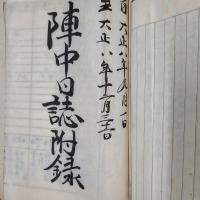 大正八年九月一日
至 大正八年十二月三十一日
陣中日誌附録